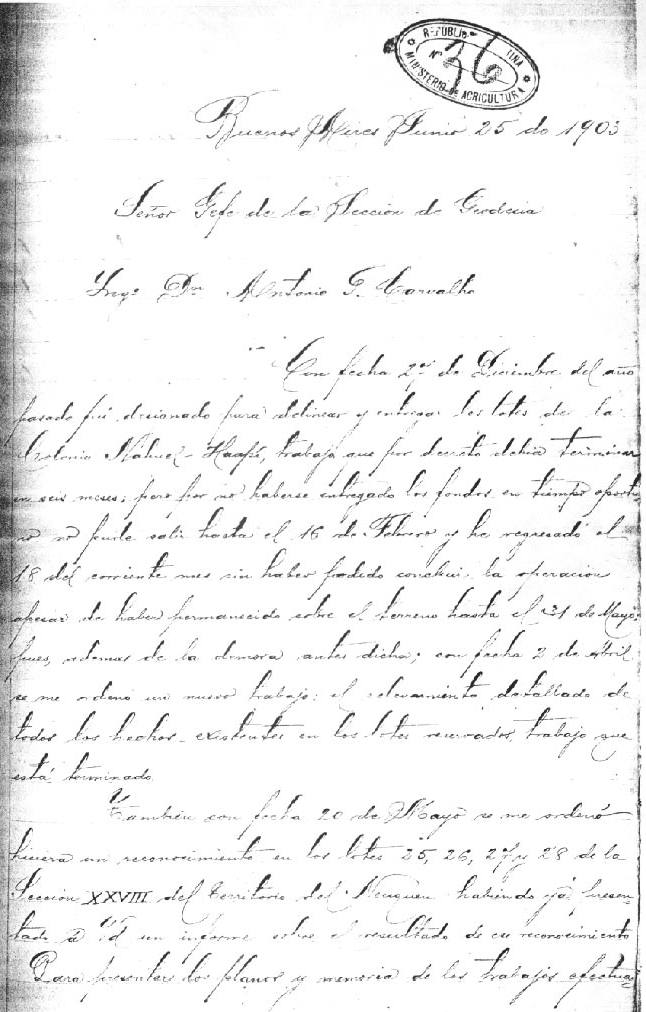 REPUBLIC TINA
Nº 36
MINISTERIO DE AGRICULTURA
Buenos Aires Junio 25 de 1903
Señor Gefe de la Seccion de Geodesia
Ingº Dn Antonio F. Carvalho
Con fecha 2 de Diciembre del año
pasado fuí designado para delinear y entregar los lotes de la
Colonia Nahuel-Huapí, trabajo que por decreto debia terminar
en seis meses; pero por no haberse entregado los fondos en tiempo oportu-
no no pude salir hasta el 16 de Febrero y he regresado el
18 del corriente mes sin haber podido concluir la operacion
apesar de haber permanecido sobre el terreno hasta el 31 de Mayo,
pues, ademas de la demora antes dicha; con fecha 2 de Abril
se me ordenó un nuevo trabajo: el relevamiento detallado de
todos los hechos existentes en los lotes reservados, trabajo que
está terminado
Tambien con fecha 20 de Mayo se me ordenó
hiciera un reconocimiento en los lotes 25, 26, 27 y 28 de la
Seccion XXVIII del Territorio del Neuquen habiendo yá presen-
tado á Vd un informe sobre el resultado de ese reconocimiento
Para presentar los planos y memoria de los trabajos efectua-